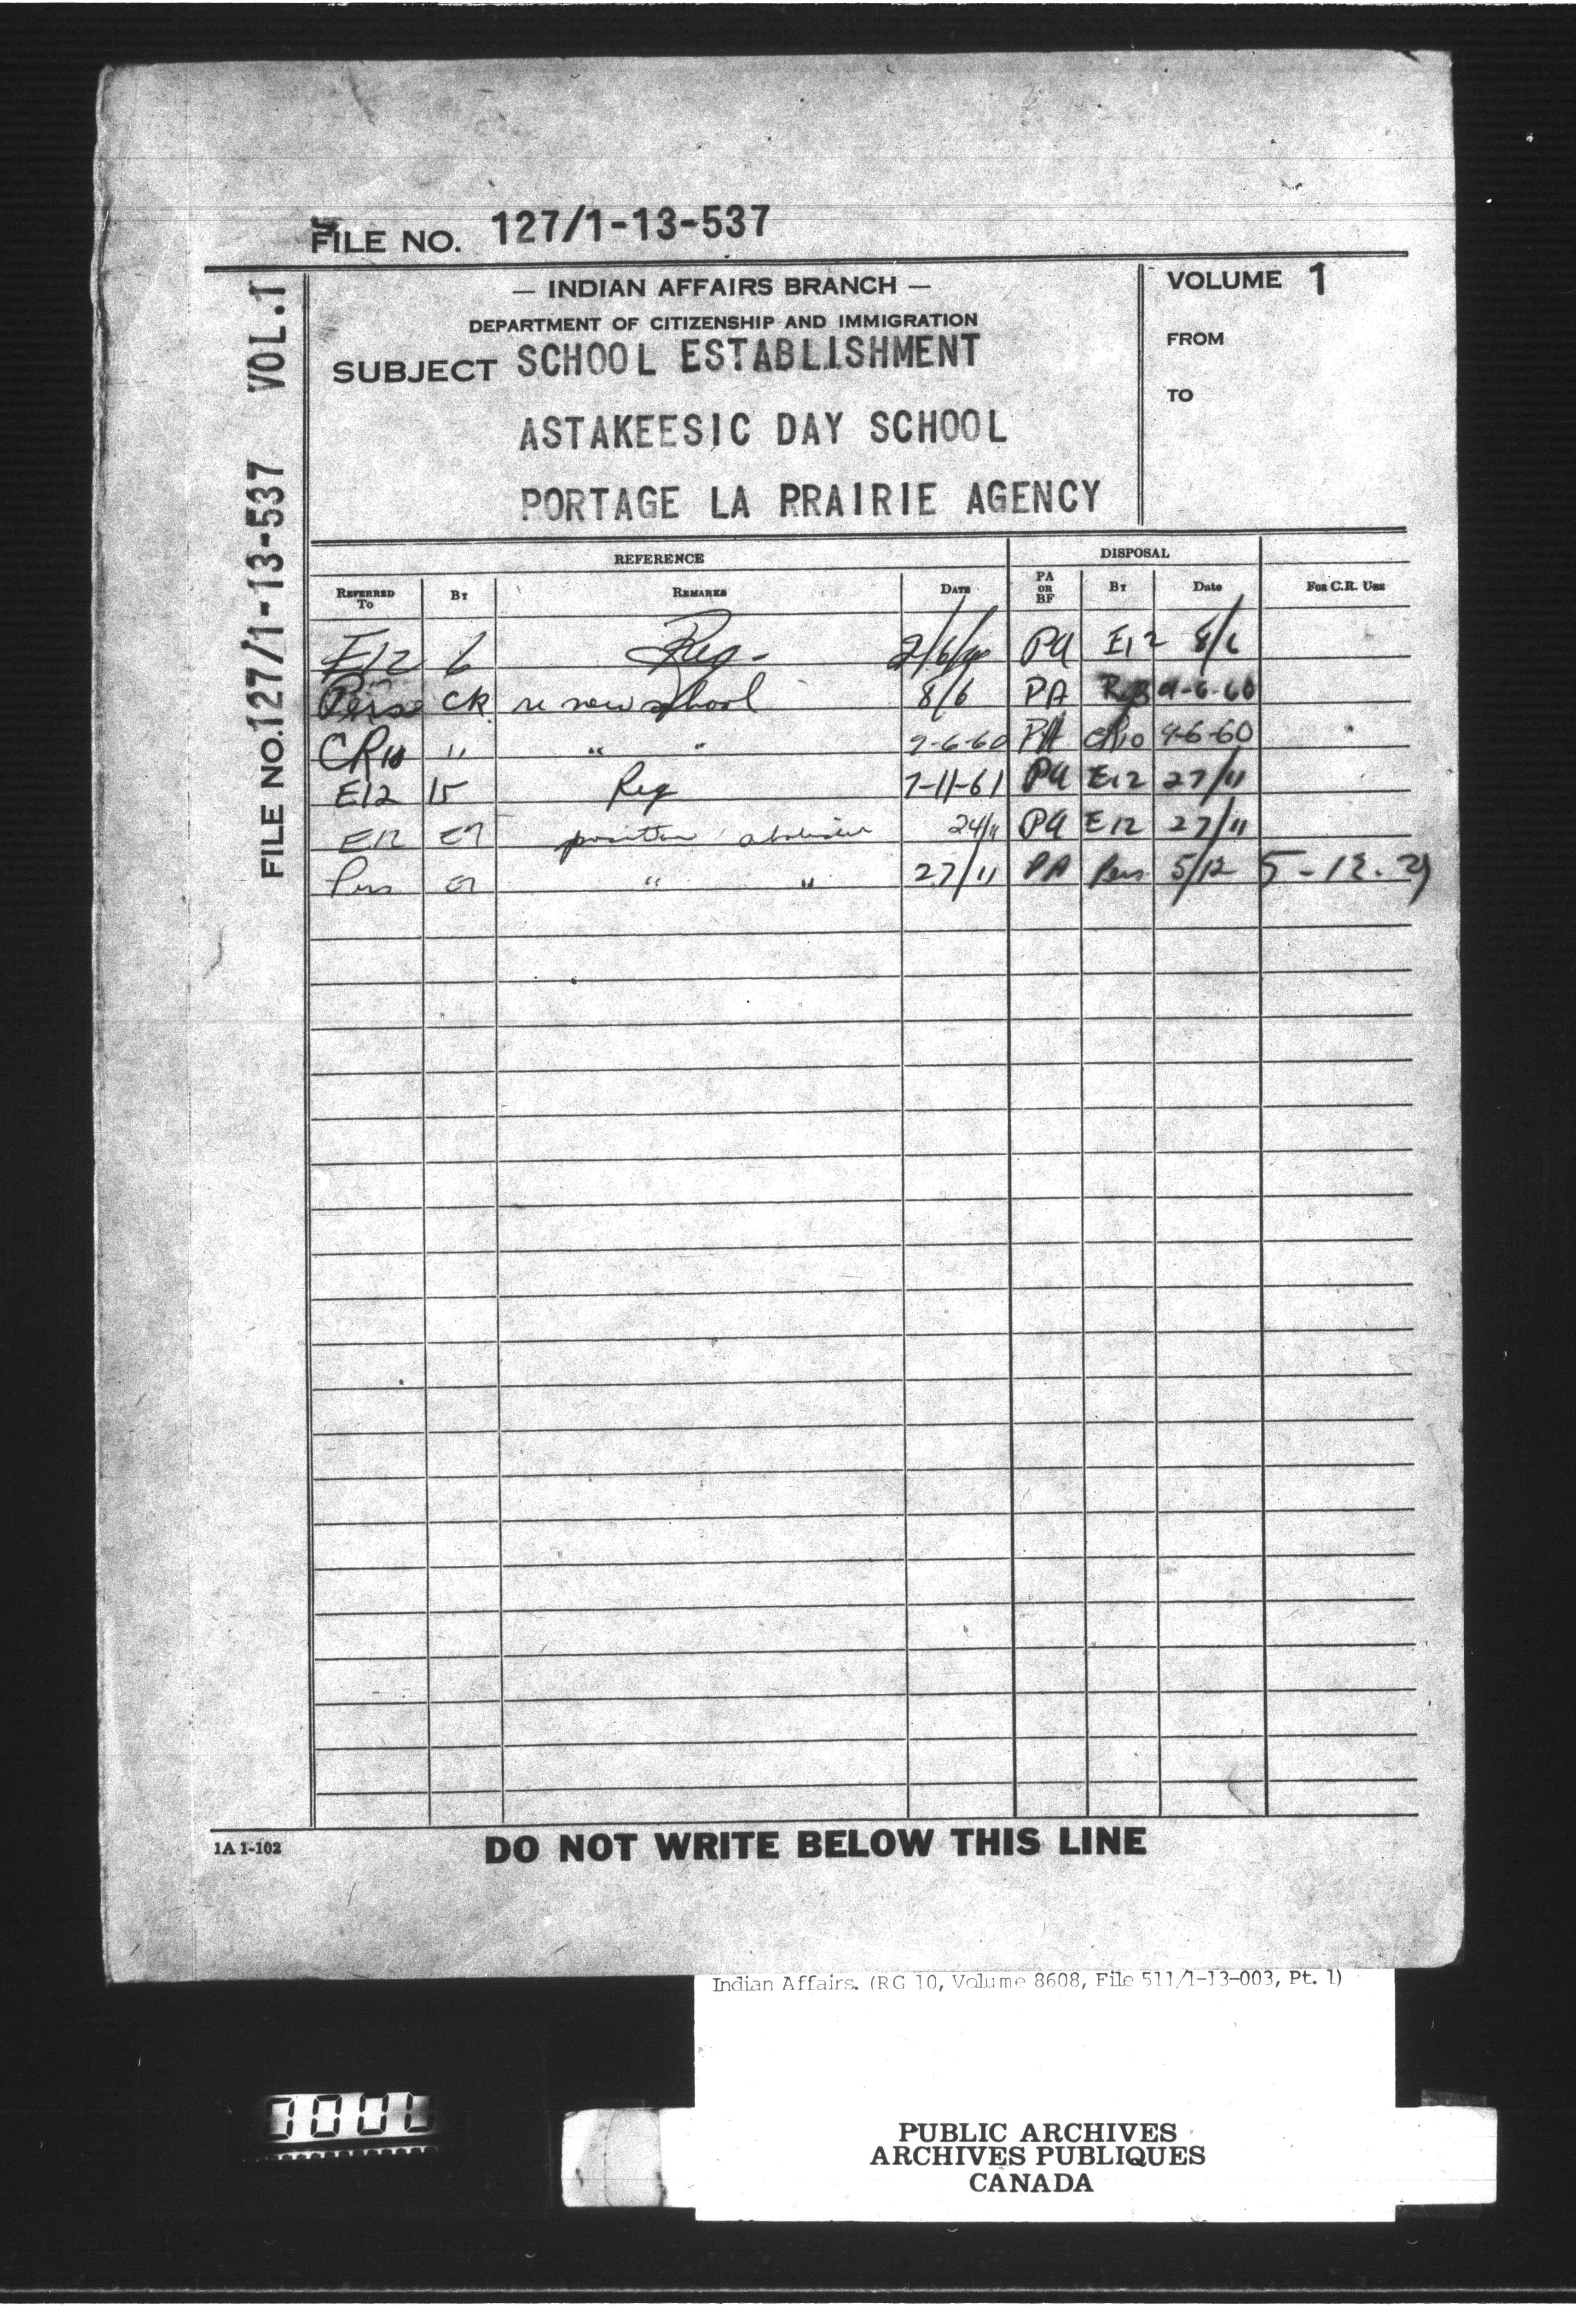 FILE NO. 127/1-13-537
FILE NO. 127/1-13-537 VOL. 1
— INDIAN AFFAIRS BRANCH —
DEPARTMENT OF CITIZENSHIP AND IMMIGRATION
SUBJECT SCHOOL ESTABLISHMENT
ASTAKEESIC DAY SCHOOL
PORTAGE LA PRAIRIE AGENCY
VOLUME 1
FROM
TO
REFERENCE DISPOSAL
REFERRED TO BY REMARKS DATE PA OR BF BY DATE FOR C.R. USE
E12 6 Req. 2/6/60 PA E12 8/6
Pers CR re new school 8/6 PA 9-6-60
CR10 " " " 9-6-60 PA CR10 9-6-60
E12 15 Req 7-11-61 PA E12 27/11
E12 position 24/11 PA E12 27/11
Pers " " 27/11 PA Pers 5/12 5-12.
1A 1-102
DO NOT WRITE BELOW THIS LINE
Indian Affairs. (RG 10, Volume 8608, File 511/1-13-003, Pt. 1)
PUBLIC ARCHIVES
ARCHIVES PUBLIQUES
CANADA